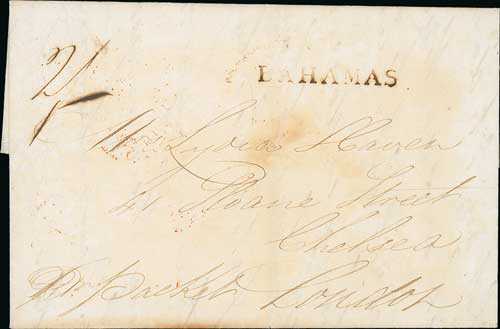 2/
BAHAMAS
Mrs Lydia
41 Sloane Street
Chelsea
Pr. packet London